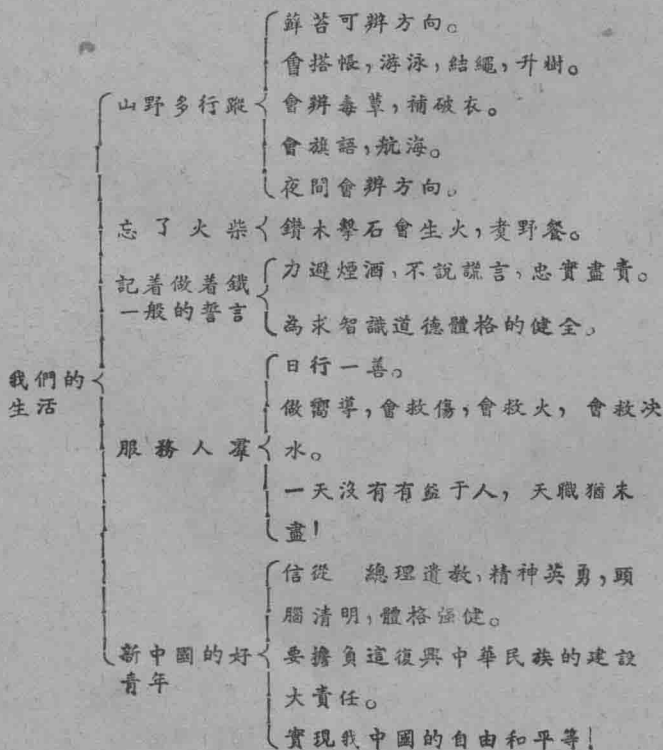 我們的
生活
山野多行蹤
蘚苔可辨方向。
會搭帳,游泳,結繩,升樹。
會辨毒草,補破衣。
會旗語,航海。
夜間會辨方向。
忘了火柴
鑽木擊石會生火,煑野餐。
記着做着鐵
一般的誓言
力避煙酒,不說謊言,忠實盡責。
為求智識道德體格的健全。
服務人羣
日行一善。
做嚮導,會救傷,會救火,會救决
水。
一天沒有有益于人,天職猶未
盡!
新中國的好
青年
信從 總理遺教,精神英勇,頭
腦清明,體格强健。
要擔負這復興中華民族的建設
大責任。
實現我中國的自由和平等!